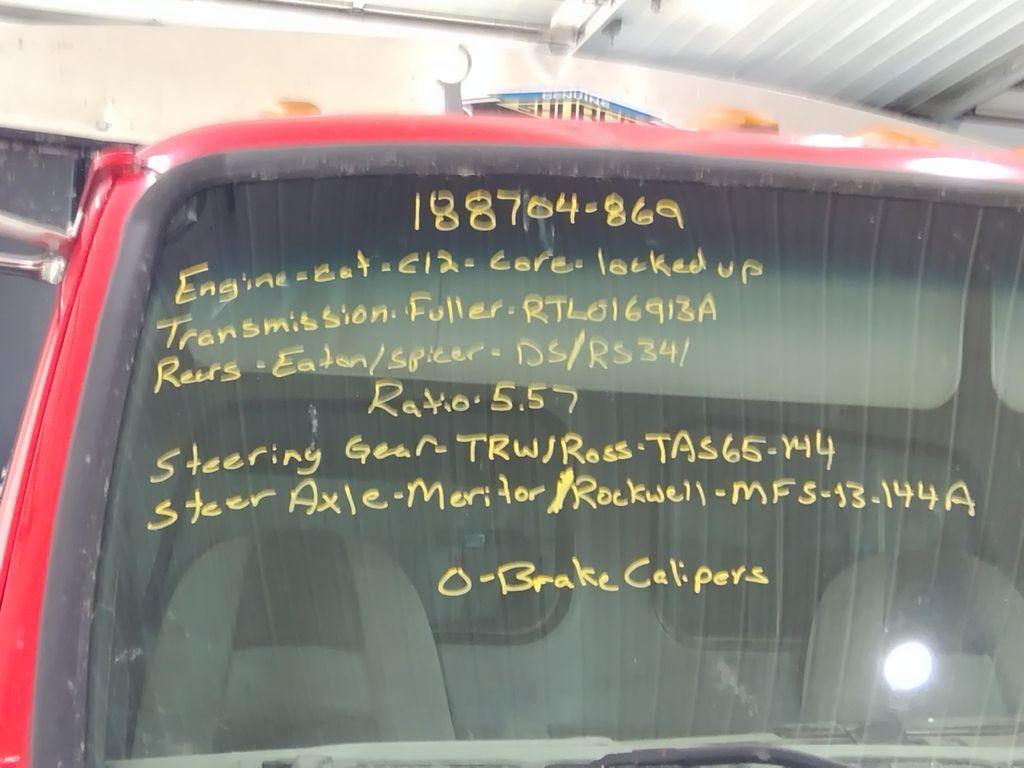 GENUINE
188704-869
Engine-cat-C12-core-locked up
Transmission-Fuller-RTLO16913A
Rears-Eaton/spicer-DS/RS341
Ratio-5.57
Steering Gear-TRW/Ross-TAS65-144
Steer Axle-Meritor/Rockwell-MFS-13-144A
0-Brake Calipers